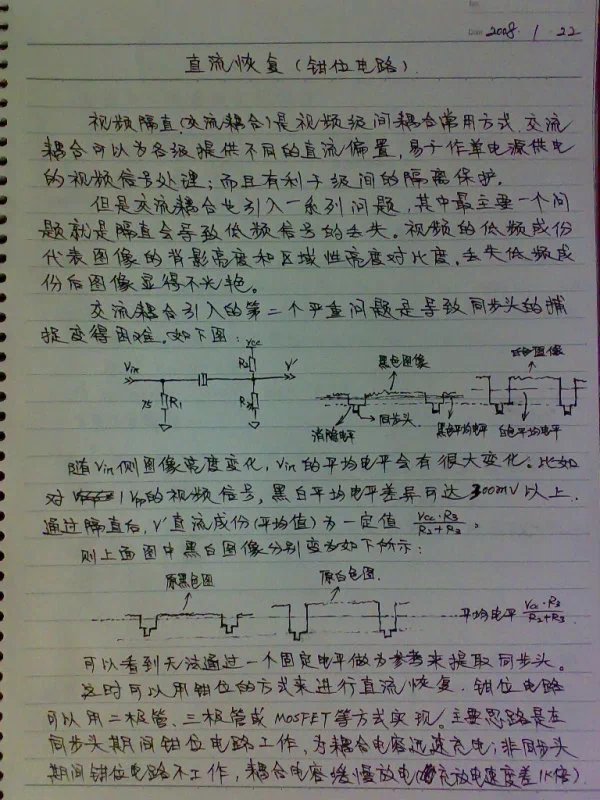 Date 2008. 1. 22
直流恢复(钳位电路)
视频隔直(交流耦合)是视频级间耦合常用方式.交流
耦合可以为各级提供不同的直流偏置,易于作单电源供电
的视频信号处理;而且有利于级间的隔离保护.
但是交流耦合也引入一系列问题,其中最主要一个问
题就是隔直会导致低频信号的丢失。视频的低频成份
代表图像的背景亮度和区域性亮度对比度.丢失低频成
份后图像显得不光艳。
交流耦合引入的第二个严重问题是导致同步头的捕
捉变得困难.如下图:
Vcc
Vin
R2
V'
75
R1
R3
黑色图像
白色图像
消隐电平
同步头
黑色平均电平
白色平均电平
随Vin侧图像亮度变化,Vin的平均电平会有很大变化。比如
对1Vpp的视频信号,黑白平均电平差异可达300mV以上.
通过隔直后,V'直流成份(平均值)为一定值 Vcc·R3/R2+R3,
则上面图中黑白图像分别变为如下所示:
原黑色图
原白色图.
平均电平 Vcc·R3/R2+R3
可以看到无法通过一个固定电平做为参考来提取同步头。
这时可以用钳位的方式来进行直流恢复.钳位电路
可以用二极管、三极管或MOSFET等方式实现。主要思路是在
同步头期间钳位电路工作,为耦合电容迅速充电;非同步头
期间钳位电路不工作,耦合电容缓慢放电(充放电速度差1K倍)